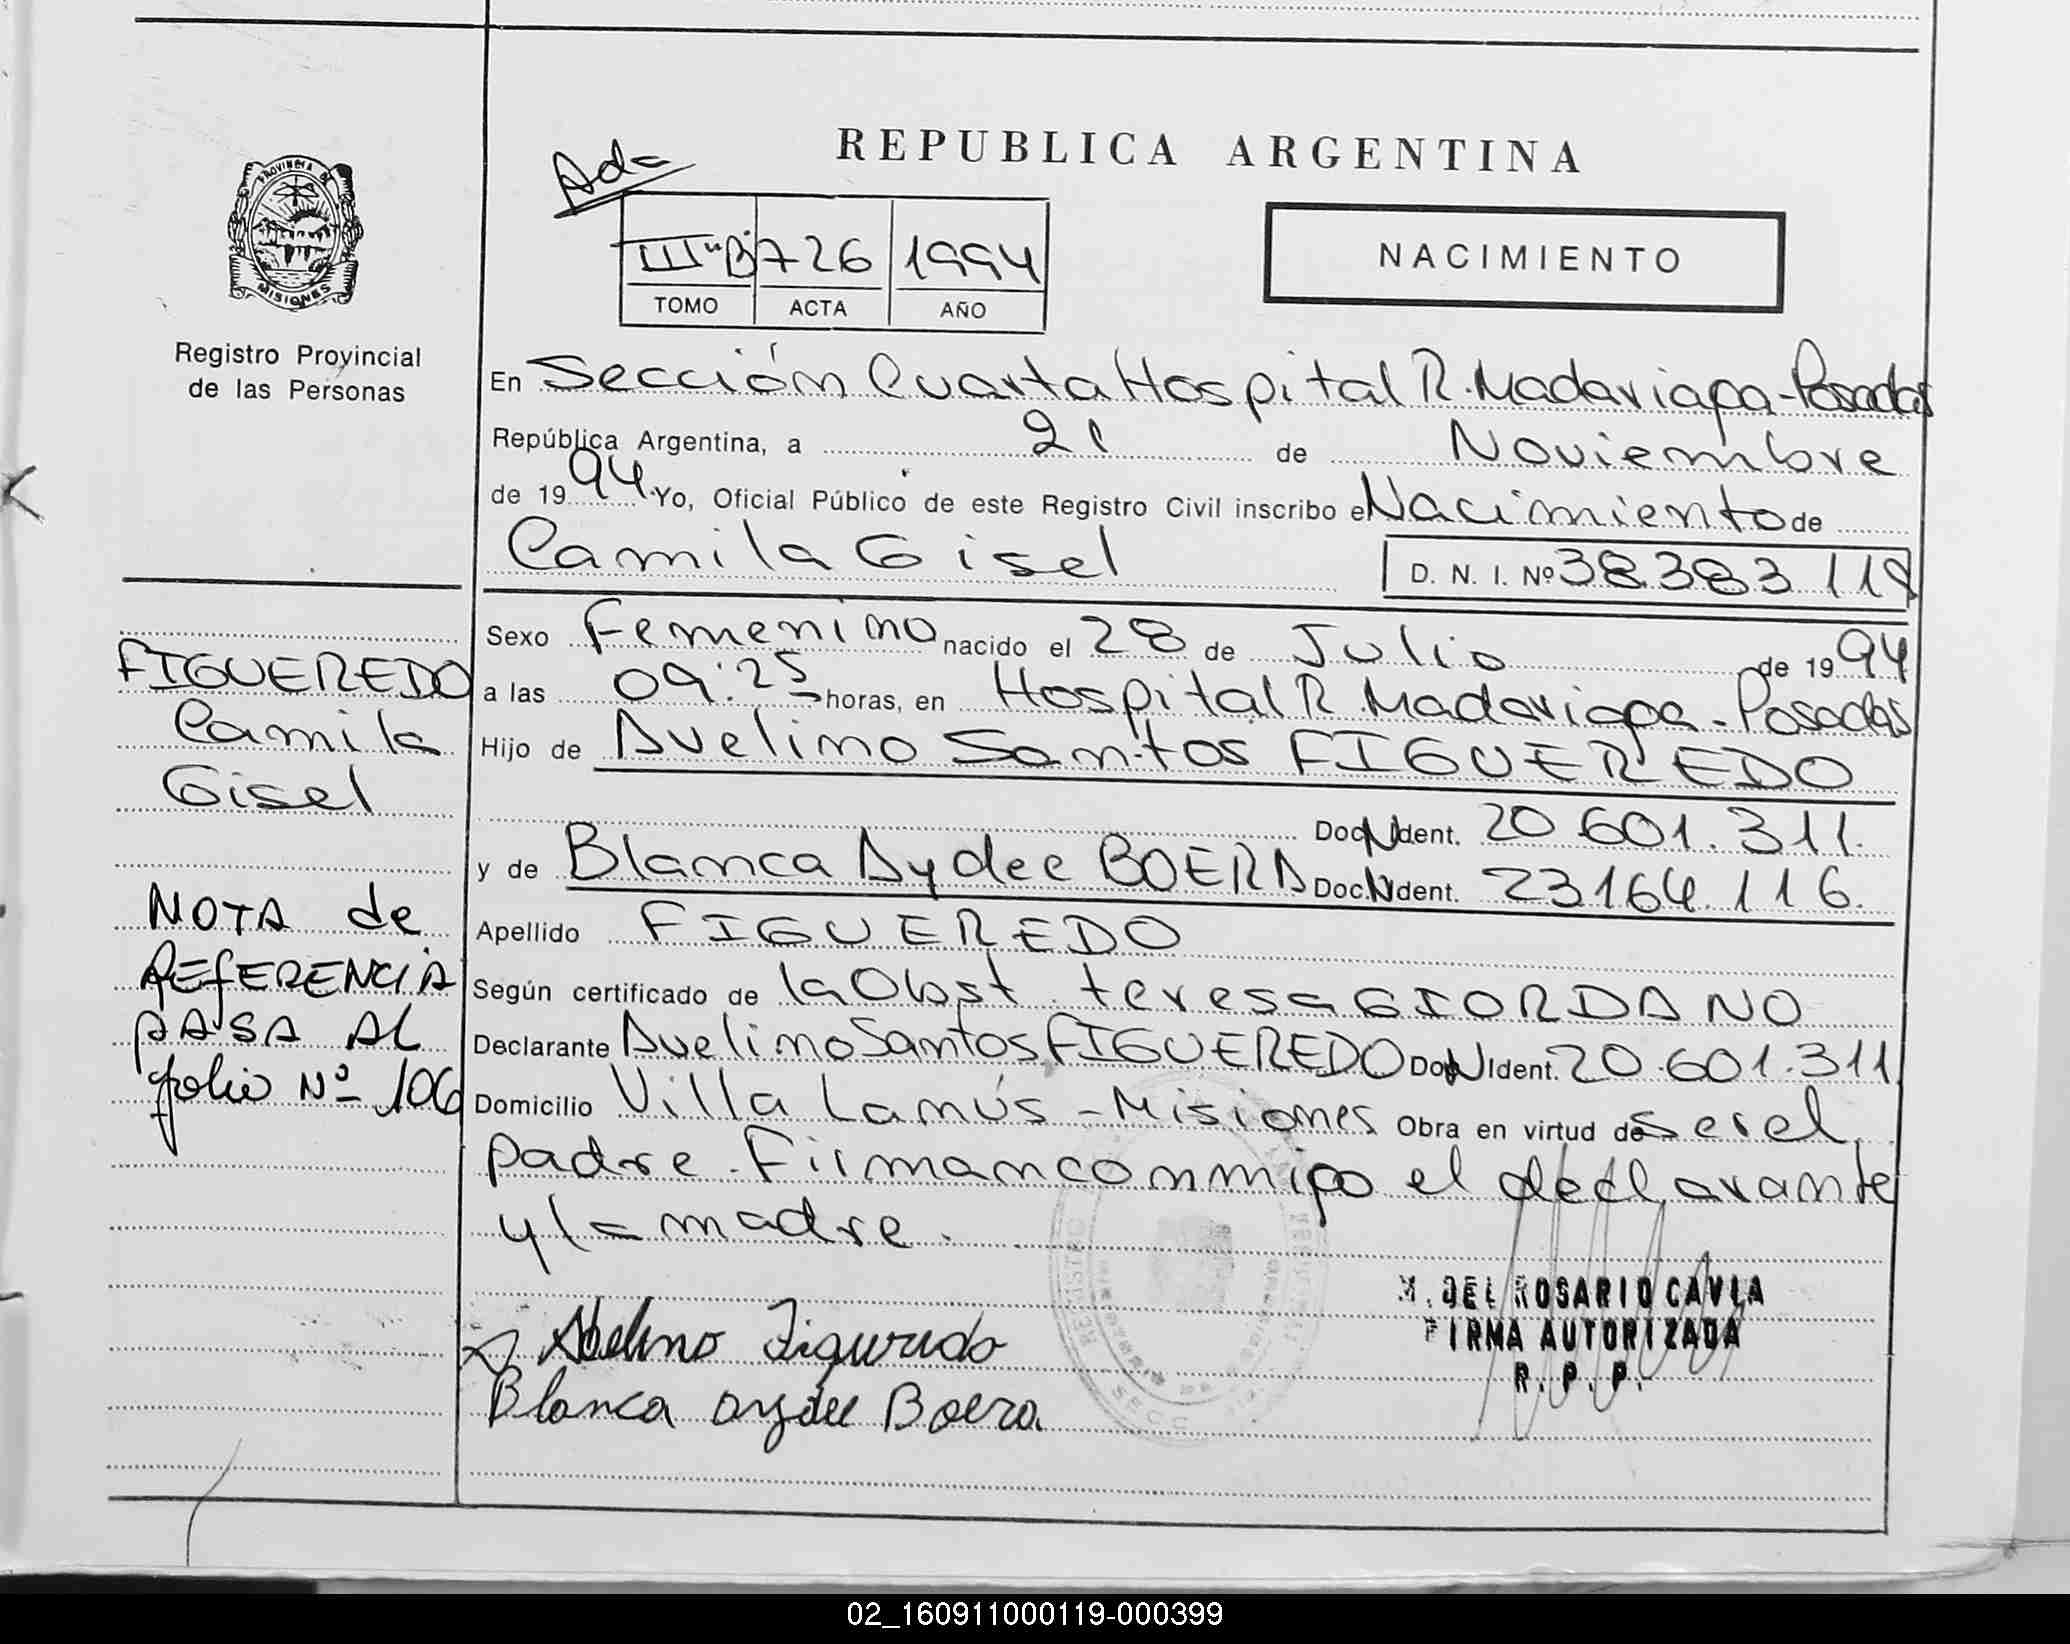 REPUBLICA ARGENTINA
Adc
III "B" 726 1994
TOMO ACTA AÑO
NACIMIENTO
PROVINCIA DE
MISIONES
Registro Provincial
de las Personas
En Sección Cuarta Hospital R. Madariaga - Posadas
República Argentina, a 21 de Noviembre
de 1994. Yo, Oficial Público de este Registro Civil inscribo el Nacimiento de
Camila Gisel D. N. I. Nº 38.383.119
Sexo Femenino nacido el 28 de Julio de 1994
a las 09:25 horas, en Hospital R. Madariaga - Posadas
Hijo de Avelino Santos FIGUEREDO
Doc. N Ident. 20.601.311.
y de Blanca Aydee BOERA Doc. N Ident. 23.164.116.
Apellido FIGUEREDO
Según certificado de la Obst. teresa GIORDANO
Declarante Avelino Santos FIGUEREDO Doc. N Ident. 20.601.311
Domicilio Villa Lanús - Misiones Obra en virtud de ser el
padre. Firman conmigo el declarante
y la madre.
FIGUEREDO
Camila
Gisel
NOTA de
REFERENCIA
PASA AL
folio Nº 106
Abelino Figueredo
Blanca Aydee Boera
M. DEL ROSARIO CAVIA
FIRMA AUTORIZADA
R. P. P.
REGISTRO
SECC
02_160911000119-000399